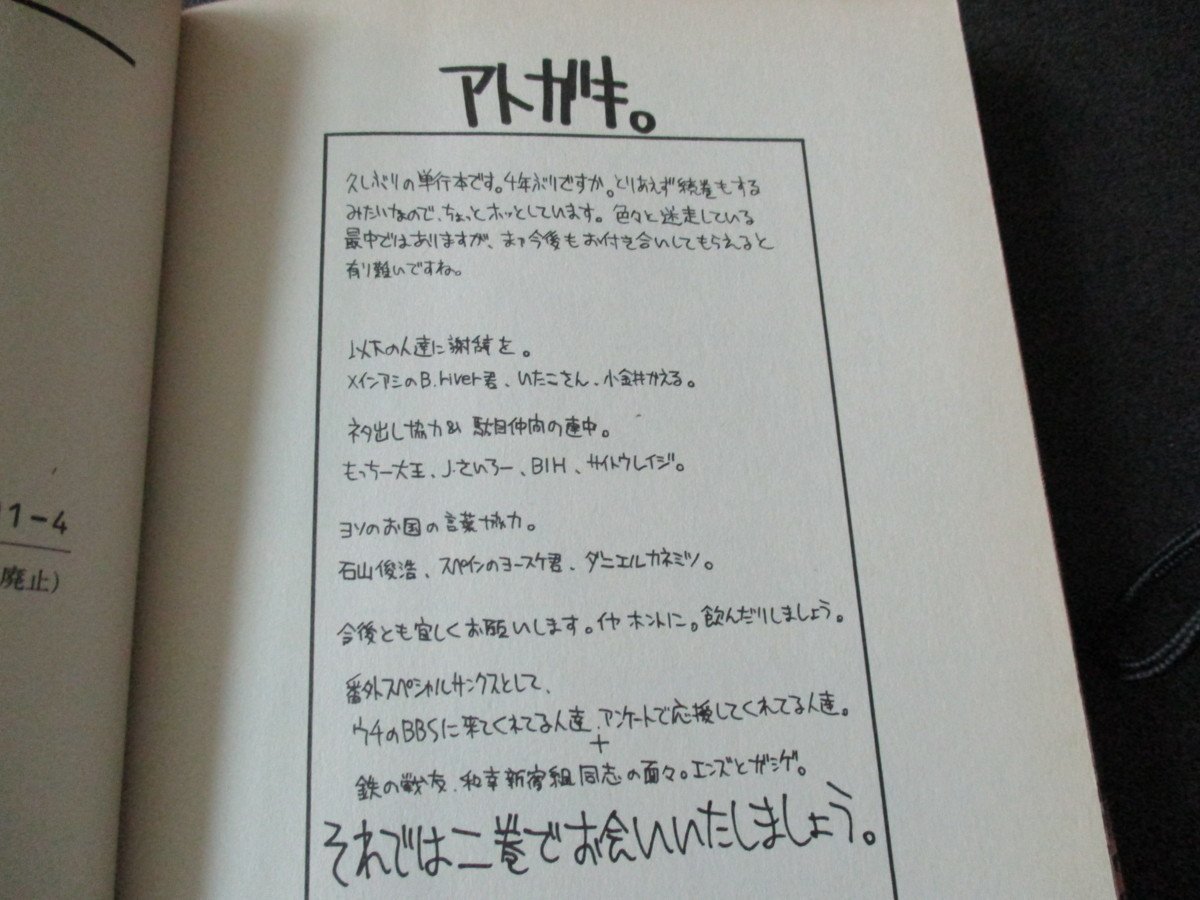 アトガキ。
久しぶりの単行本です。4年ぶりですか。とりあえず続巻もする
みたいなので、ちょっとホッとしています。色々と迷走している
最中ではありますが、まァ今後もお付き合いしてもらえると
有り難いですね。
以下の人達に謝辞を。
メインアシのB.river君、いたこさん、小金井かえる。
ネタ出し協力& 駄目仲間の連中。
もっちー大王、J.さいろー、BIH、サイトウレイジ。
ヨソのお国の言葉協力。
石山俊浩、スペインのヨースケ君、ダニエルカネミツ。
今後とも宜しくお願いします。イヤ ホントに。飲んだりしましょう。
番外スペシャルサンクスとして、
ウチのBBSに来てくれてる人達、アンケートで応援してくれてる人達。
+
鉄の戦友、和幸新宿組同志の面々。エンズとガシゲ。
それでは二巻でお会いいたしましょう。
11-4
廃止)